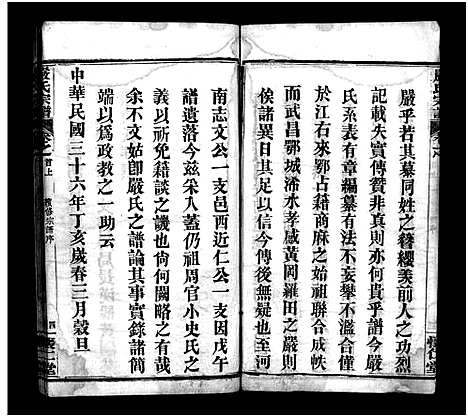 嚴乎若其慕同姓之簪纓羨前人之功烈
記載失實傳贊非真則亦何貴乎譜今嚴
氏系表有章編纂有法不妄攀不濫合僅
於江右來鄂占籍商麻之始祖聯合成帙
而武昌鄂城浠水孝感黃岡羅田之嚴則
俟諸異日其足以信今傳後無疑也至河
南志文公一支邑西近仁公一支因戊午
譜遺落今茲采入蓋仍祖周官小史氏之
義以祈免籍談之譏也倘何闕略之有哉
余不文姑卽嚴氏之譜論其事實錄諸簡
端以爲政教之一助云
中華民國三十六年丁亥歲春三月穀旦
嚴氏宗譜
卷之首上
續修宗譜序
四